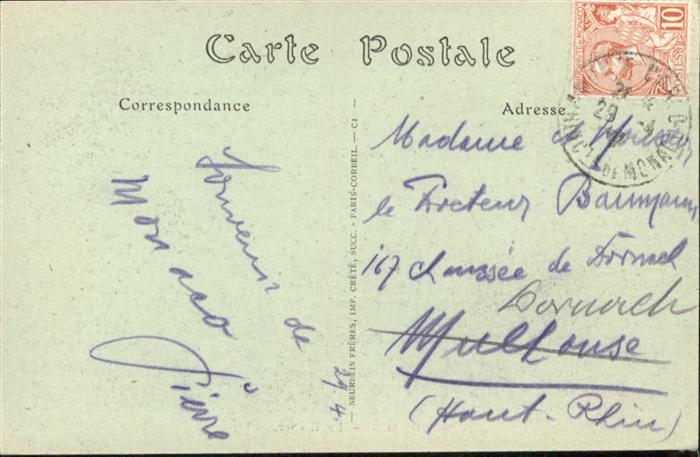 Carte Postale
Correspondance
Adresse
Souvenir de
Monaco
Pierre
29.4
NEURDEIN FRÈRES, IMP. CRÉTÉ, SUCC. - PARIS-CORBEIL. - C1
10
29 -4
PRINC.TE DE MONACO
Madame et Monsieur
le Docteur Baumann
167 chaussée de Dornach
Dornach
Mulhouse
(Haut-Rhin)